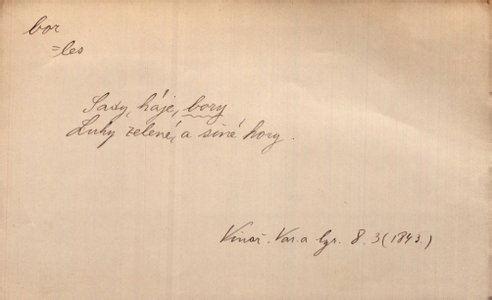 bor
=les
Sady, háje, bory
Luhy zelené, a siné hory.
Vinař. Var. a lyr. 8. 3 (1843.)